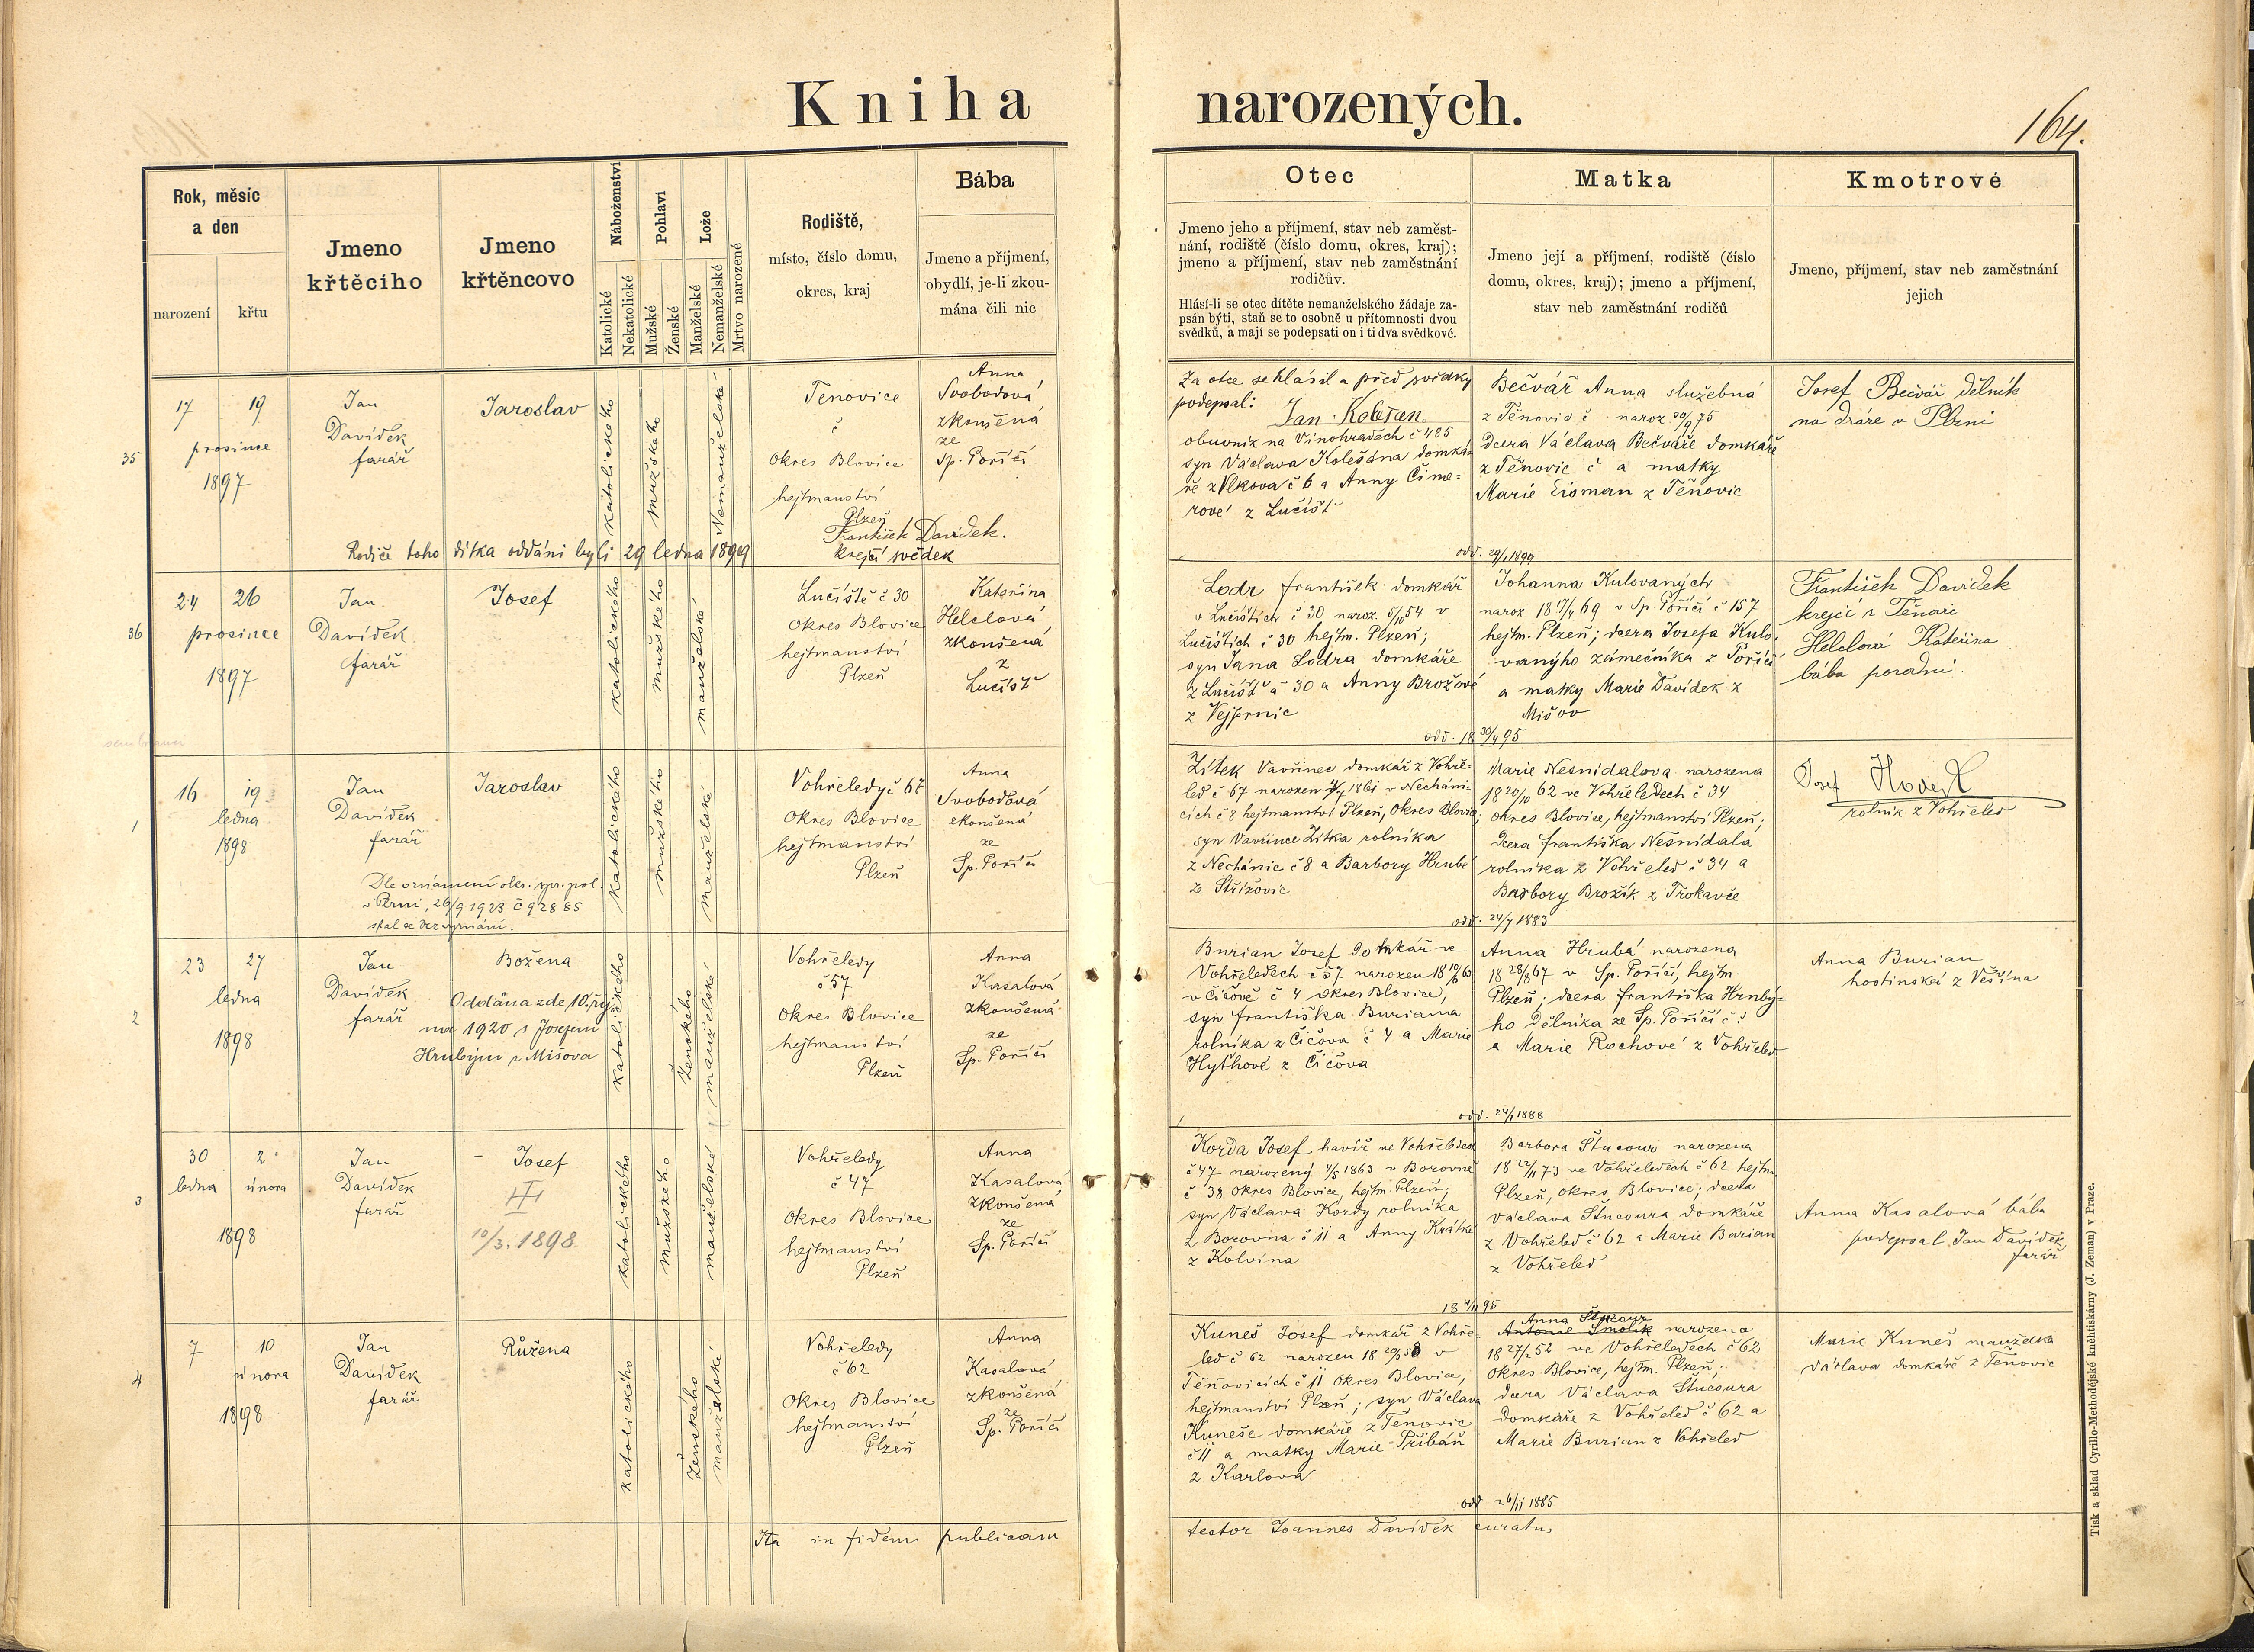 Kniha narozených.
164.
Rok, měsíc
a den
narození
křtu
Jmeno
křtěcího
Jmeno
křtěncovo
Náboženství
Katolické
Nekatolické
Pohlaví
Mužské
Ženské
Lože
Manželské
Nemanželské
Mrtvo narozené
Rodiště,
místo, číslo domu,
okres, kraj
Bába
Jmeno a příjmení,
obydlí, je-li zkou-
mána čili nic
Otec
Jmeno jeho a příjmení, stav neb zaměst-
nání, rodiště (číslo domu, okres, kraj);
jmeno a příjmení, stav neb zaměstnání
rodičův.
Hlásí-li se otec dítěte nemanželského žádaje za-
psán býti, staň se to osobně u přítomnosti dvou
svědků, a mají se podepsati on i ti dva svědkové.
Matka
Jmeno její a příjmení, rodiště (číslo
domu, okres, kraj); jmeno a příjmení,
stav neb zaměstnání rodičů
Kmotrové
Jmeno, příjmení, stav neb zaměstnání
jejich
35
17 19
prosince
1897
Jan
Davídek
farář
Jaroslav
katolického
mužského
Nemanželské
Tenovice
č
Okres Blovice
hejtmanství
Plzeň
Anna
Svobodová
zkoušená
ze
Sp. Poříčí
František Davídek.
krejčí svědek
Rodiče toho dítka oddáni byli 29 ledna 1899
Za otce se hlásil a před svědky
podepsal:
Jan Kolešan
obuvník na Vinohradech č 485
syn Václava Kolešána domká
ře z Vlkova č 6 a Anny Čime-
rové z Lučišť
Bečvář Anna služebná
z Těnovic č naroz 20/9 75
dcera Václava Bečváře domkáře
z Těnovic č a matky
Marie Eisman z Těňovic
odd. 29/1 1899
Josef Bečvář dělník
na dráze v Plzni
36
24 26
prosince
1897
Jan
Davídek
farář
Josef
katolického
mužského
manželské
Lučiště č 30
Okres Blovice
hejtmanství
Plzeň
Kateřina
Helclová
zkoušená
z
Lučišť
Lodr František domkář
v Lučištích č 30 naroz. 5/10 54 v
Lučištích č 30 hejtm. Plzeň;
syn Jana Lodra domkáře
z Lučišť č 30 a Anny Brožové
z Vejprnic
Johanna Kulovaných
naroz 18 17/4 69 v Sp. Poříčí č 157
hejtm. Plzeň; dcera Josefa Kulo-
vanýho zámečníka z Poříčí
a matky Marie Davídek z
Mišov
odd. 18 30/4 95
František Davídek
krejčí z
Helclová Kateřina
bába porodní
1
16 19
ledna
1898
Jan
Davídek
farář
Jaroslav
katolického
mužského
manželské
Dle oznámení okr. spr. pol.
v Plzni, 26/9 1923 č 92885
stal se bez vyznání.
Vohřeledy č 67
Okres Blovice
hejtmanství
Plzeň
Anna
Svobodová
zkoušená
ze
Sp. Poříčí
Zítek Vavřinec domkář z Vohře-
led č 67 narozen 1861 v Necháni-
cích č 8 hejtmanství Plzeň, Okres Blovice;
syn Vavřince Zítka rolníka
z Nechánic č 8 a Barbory Hrubé
ze Střížovic
Marie Nesnídalova narozena
18 20/10 62 ve Vohřeledech č 34
okres Blovice, hejtmanství Plzeň;
dcera Františka Nesnídala
rolníka z Vohřeled č 34 a
Barbory Brožík z Trokavče
odd. 24/7 1883
Josef
rolník z Vohřeled
2
23 27
ledna
1898
Jan
Davídek
farář
Božena
Oddána zde 10. říj-
na 1920 s Josefem
Hrubým z Mišova
katolického
Ženského
manželské
Vohřeledy
č 57
Okres Blovice
hejtmanství
Plzeň
Anna
Kasalová
zkoušená
ze
Sp. Poříčí
Burian Josef domkář ve
Vohřeledech č 57 narozen 18 63
v Čičově č 4 okres Blovice,
syn Františka Buriana
rolníka z Čičova č 4 a Marie
Hythové z Čičova
Anna Hrubá narozena
18 28/8 67 v Sp. Poříčí, hejtm.
Plzeň; dcera Františka Hrubý-
ho dělníka ze Sp. Poříčí č:
a Marie Rochové z Vohřeled
odd. 24/1 1888
Anna Burian
hostinská z Vešína
3
30 2
ledna února
1898
Jan
Davídek
farář
Josef
10/3. 1898
katolického
mužského
manželské
Vohřeledy
č 47
Okres Blovice
hejtmanství
Plzeň
Anna
Kasalová
zkoušená
ze
Sp. Poříčí
Korda Josef havíř ve Vohřeledech
č 47 narozený 4/5 1863 v Borovně
č 38 okres Blovice, hejtm. Plzeň;
syn Václava Kordy rolníka
z Borovna č 11 a Anny Krátké
z Kolvína
Barbora Štucour narozena
18 73 ve Vohřeledech č 62 hejtm
Plzeň, okres Blovice; dcera
Václava Štucoura domkáře
z Vohřeled č 62 a Marie Burian
z Vohřeled
18 4/11 95
Anna Kasalová bába
podepsal Jan Davídek
farář
4
7 10
února
1898
Jan
Davídek
farář
Růžena
katolického
Ženského
manželské
Vohřeledy
č 62
Okres Blovice
hejtmanství
Plzeň
Anna
Kasalová
zkoušená
ze
Sp. Poříčí
Kuneš Josef domkář z Vohře-
led č 62 narozen 18 v
Těňovicích č 11 okres Blovice,
hejtmanství Plzeň; syn Václava
Kuneše domkáře z Tenovic
č 11 a matky Marie Přibáň
z Karlova
Anna Štucour
Antonie Smolík narozena
18 27/2 52 ve Vohřeledech č 62
okres Blovice, hejtm. Plzeň.
dcera Václava Štucoura
domkáře z Vohřeled č 62 a
Marie Burian z Vohřeled
odd 26/11 1885
Marie Kuneš manželka
Václava domkáře z Teňovic
Ita in fidem publicam testor Joannes Davídek curatus
Tisk a sklad Cyrillo-Methodějské kněhtiskárny (J. Zeman) v Praze.